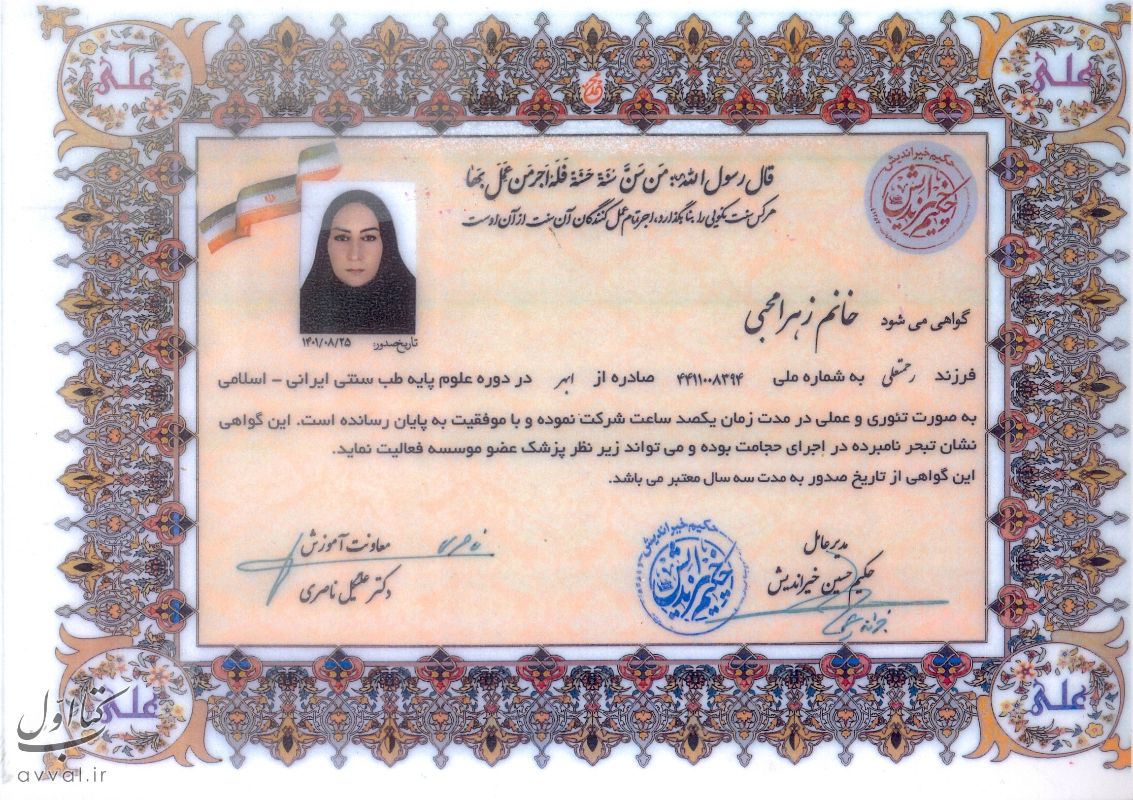 علی
علی
قال رسول الله: مَن سَنَّ سُنَّة حَسَنَة فَلَهُ اَجرُ مَن عَمَلَ بِها
هر کس سنت نکویی را بنا بگذارد، اجر تمام عمل کنندگان آن سنت از آن اوست
حکیم خیراندیش
تاریخ صدور: ۱۴۰۱/۰۸/۲۵
گواهی می شود خانم زهرا محبی
فرزند رحمتعلی به شماره ملی ۴۴۱۱۰۰۸۳۹۴ صادره از ابهر در دوره علوم پایه طب سنتی ایرانی - اسلامی
به صورت تئوری و عملی در مدت زمان یکصد ساعت شرکت نموده و با موفقیت به پایان رسانده است. این گواهی
نشان تبحر نامبرده در اجرای حجامت بوده و می تواند زیر نظر پزشک عضو موسسه فعالیت نماید.
این گواهی از تاریخ صدور به مدت سه سال معتبر می باشد.
مدیرعامل
حکیم حسین خیراندیش
حکیم خیراندیش
معاونت آموزش
دکتر عقیل ناصری
علی
علی
کتاب اول
avval.ir